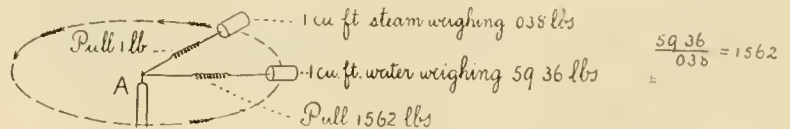 1 cu ft steam weighing 038 lbs
Pull 1 lb
A
1 cu. ft. water weighing 59 36 lbs
Pull 1562 lbs
59 36
038
= 1562
=